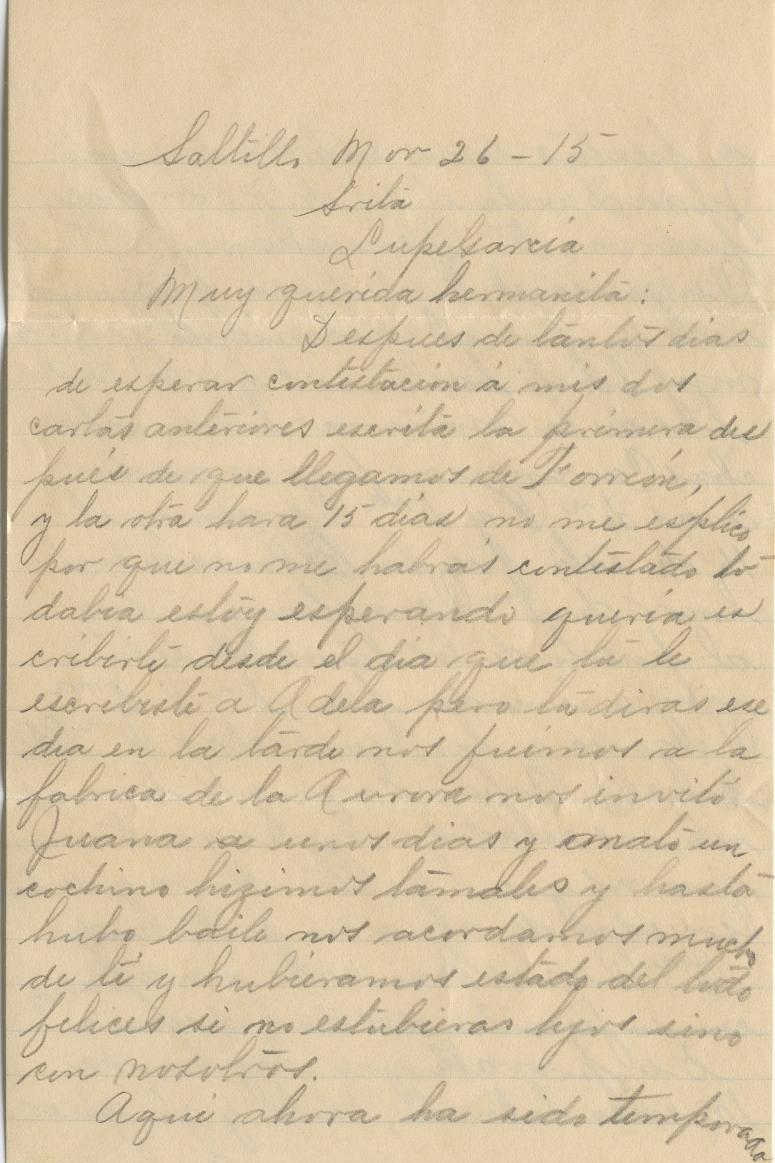 Saltillo Nov 26 - 15
Srita
Lupe Garcia
Muy querida hermanita:
Despues de tantos dias
de esperar contestacion á mis dos
cartas anteriores escrita la primera des
pués de que llegamos de Torreón,
y la otra hara 15 dias no me esplico
por que no me habrás contestado to
dabia estoy esperando queria es
cribirte desde el dia que tú le
escribiste a Adela pero tú diras ese
dia en la tarde nos fuimos a la
fabrica de la Aurora nos invitó
Juana a unos dias y mató un
cochino hizimos tamales y hasta
hubo baile nos acordamos mucho
de ti y hubieramos estado del todo
felices si no estubieras lejos sino
con nosotros.
Aqui ahora ha sido temporada